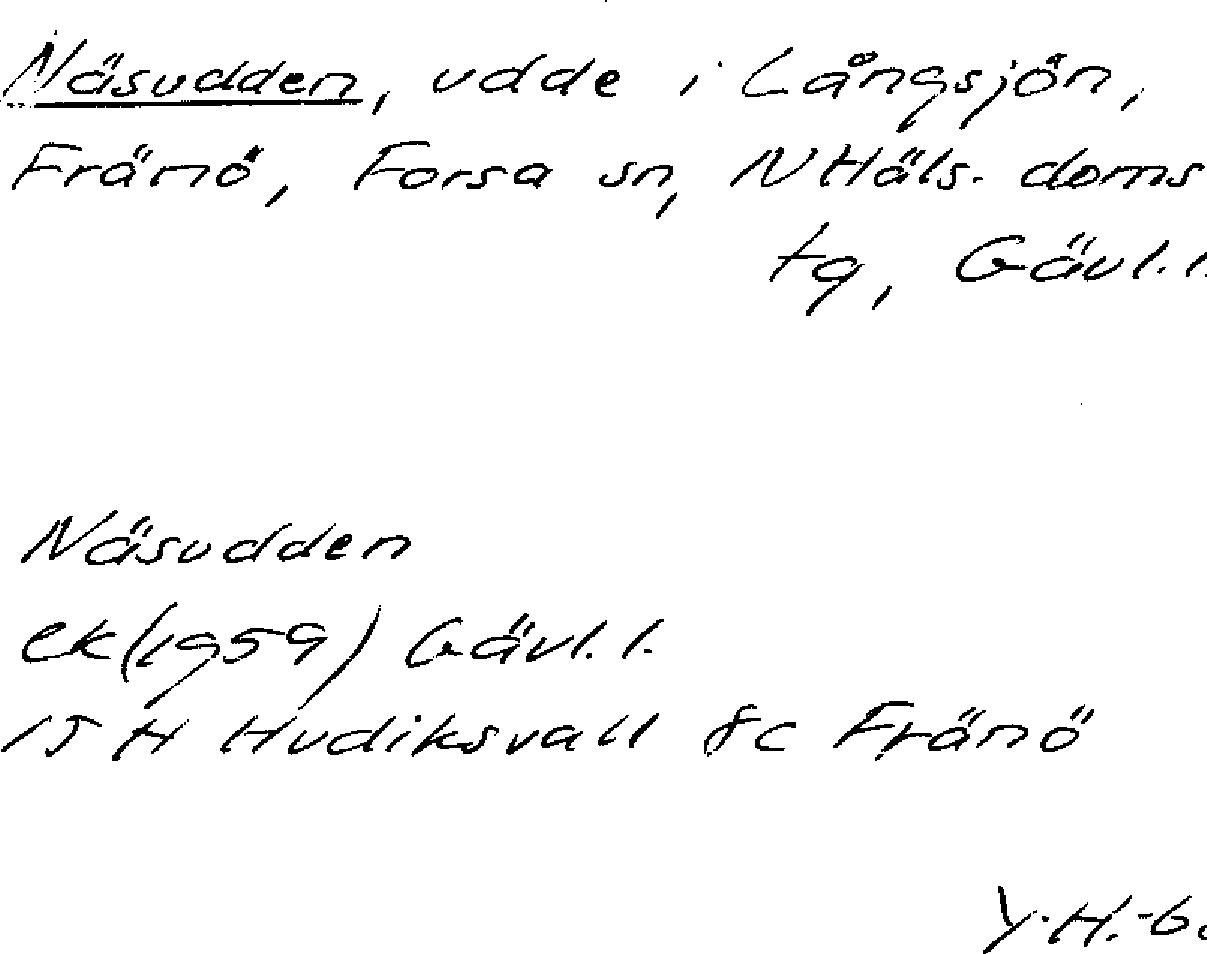 Näsudden, udde i Långsjön,
Främö, Forsa sn, NHäls. doms
tg, Gävl. l.
Näsudden
ek(1959) Gävl. l.
15 H Hudiksvall 8c Främö
Y.H.-6.